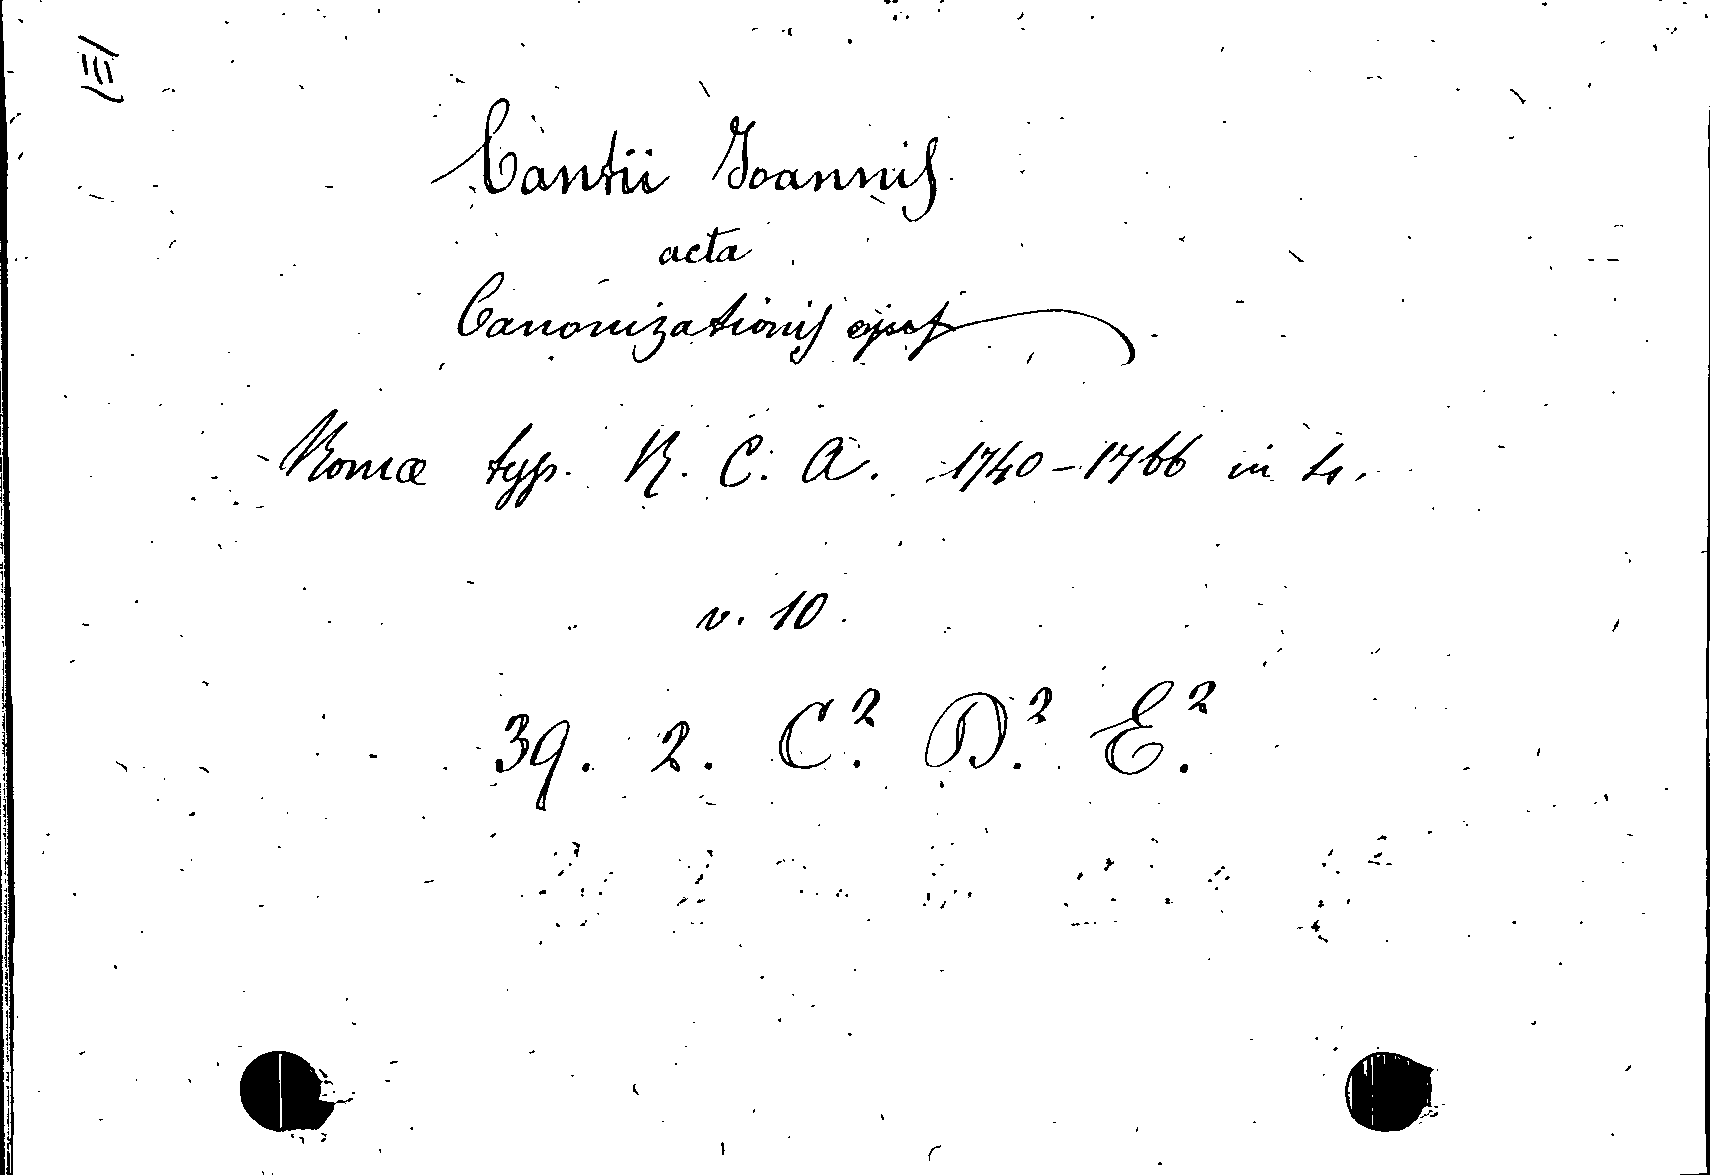 Cantii Joannis
acta
Canonizationis ejus
Romæ typ. R. C. A. 1740-1766 in 4.
v. 10.
39. 2. C.² D.² E.²